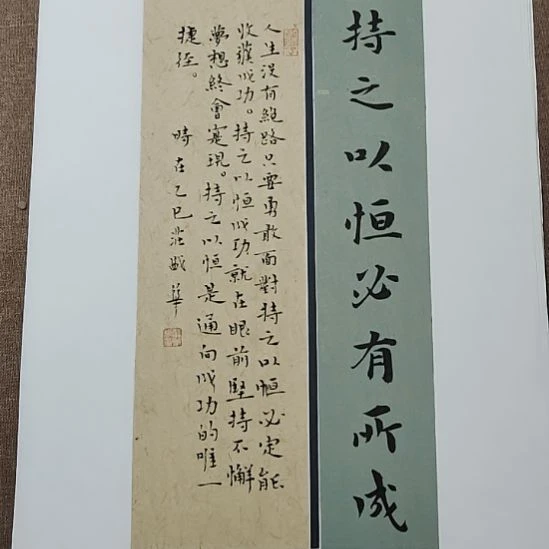 持之以恒必有所成
人生没有絕路只要勇敢面對持之以恒必定能
收獲成功。持之以恒成功就在眼前堅持不懈
夢想終會寔現。持之以恒是通向成功的唯一
捷徑。 時在乙巳莊 華